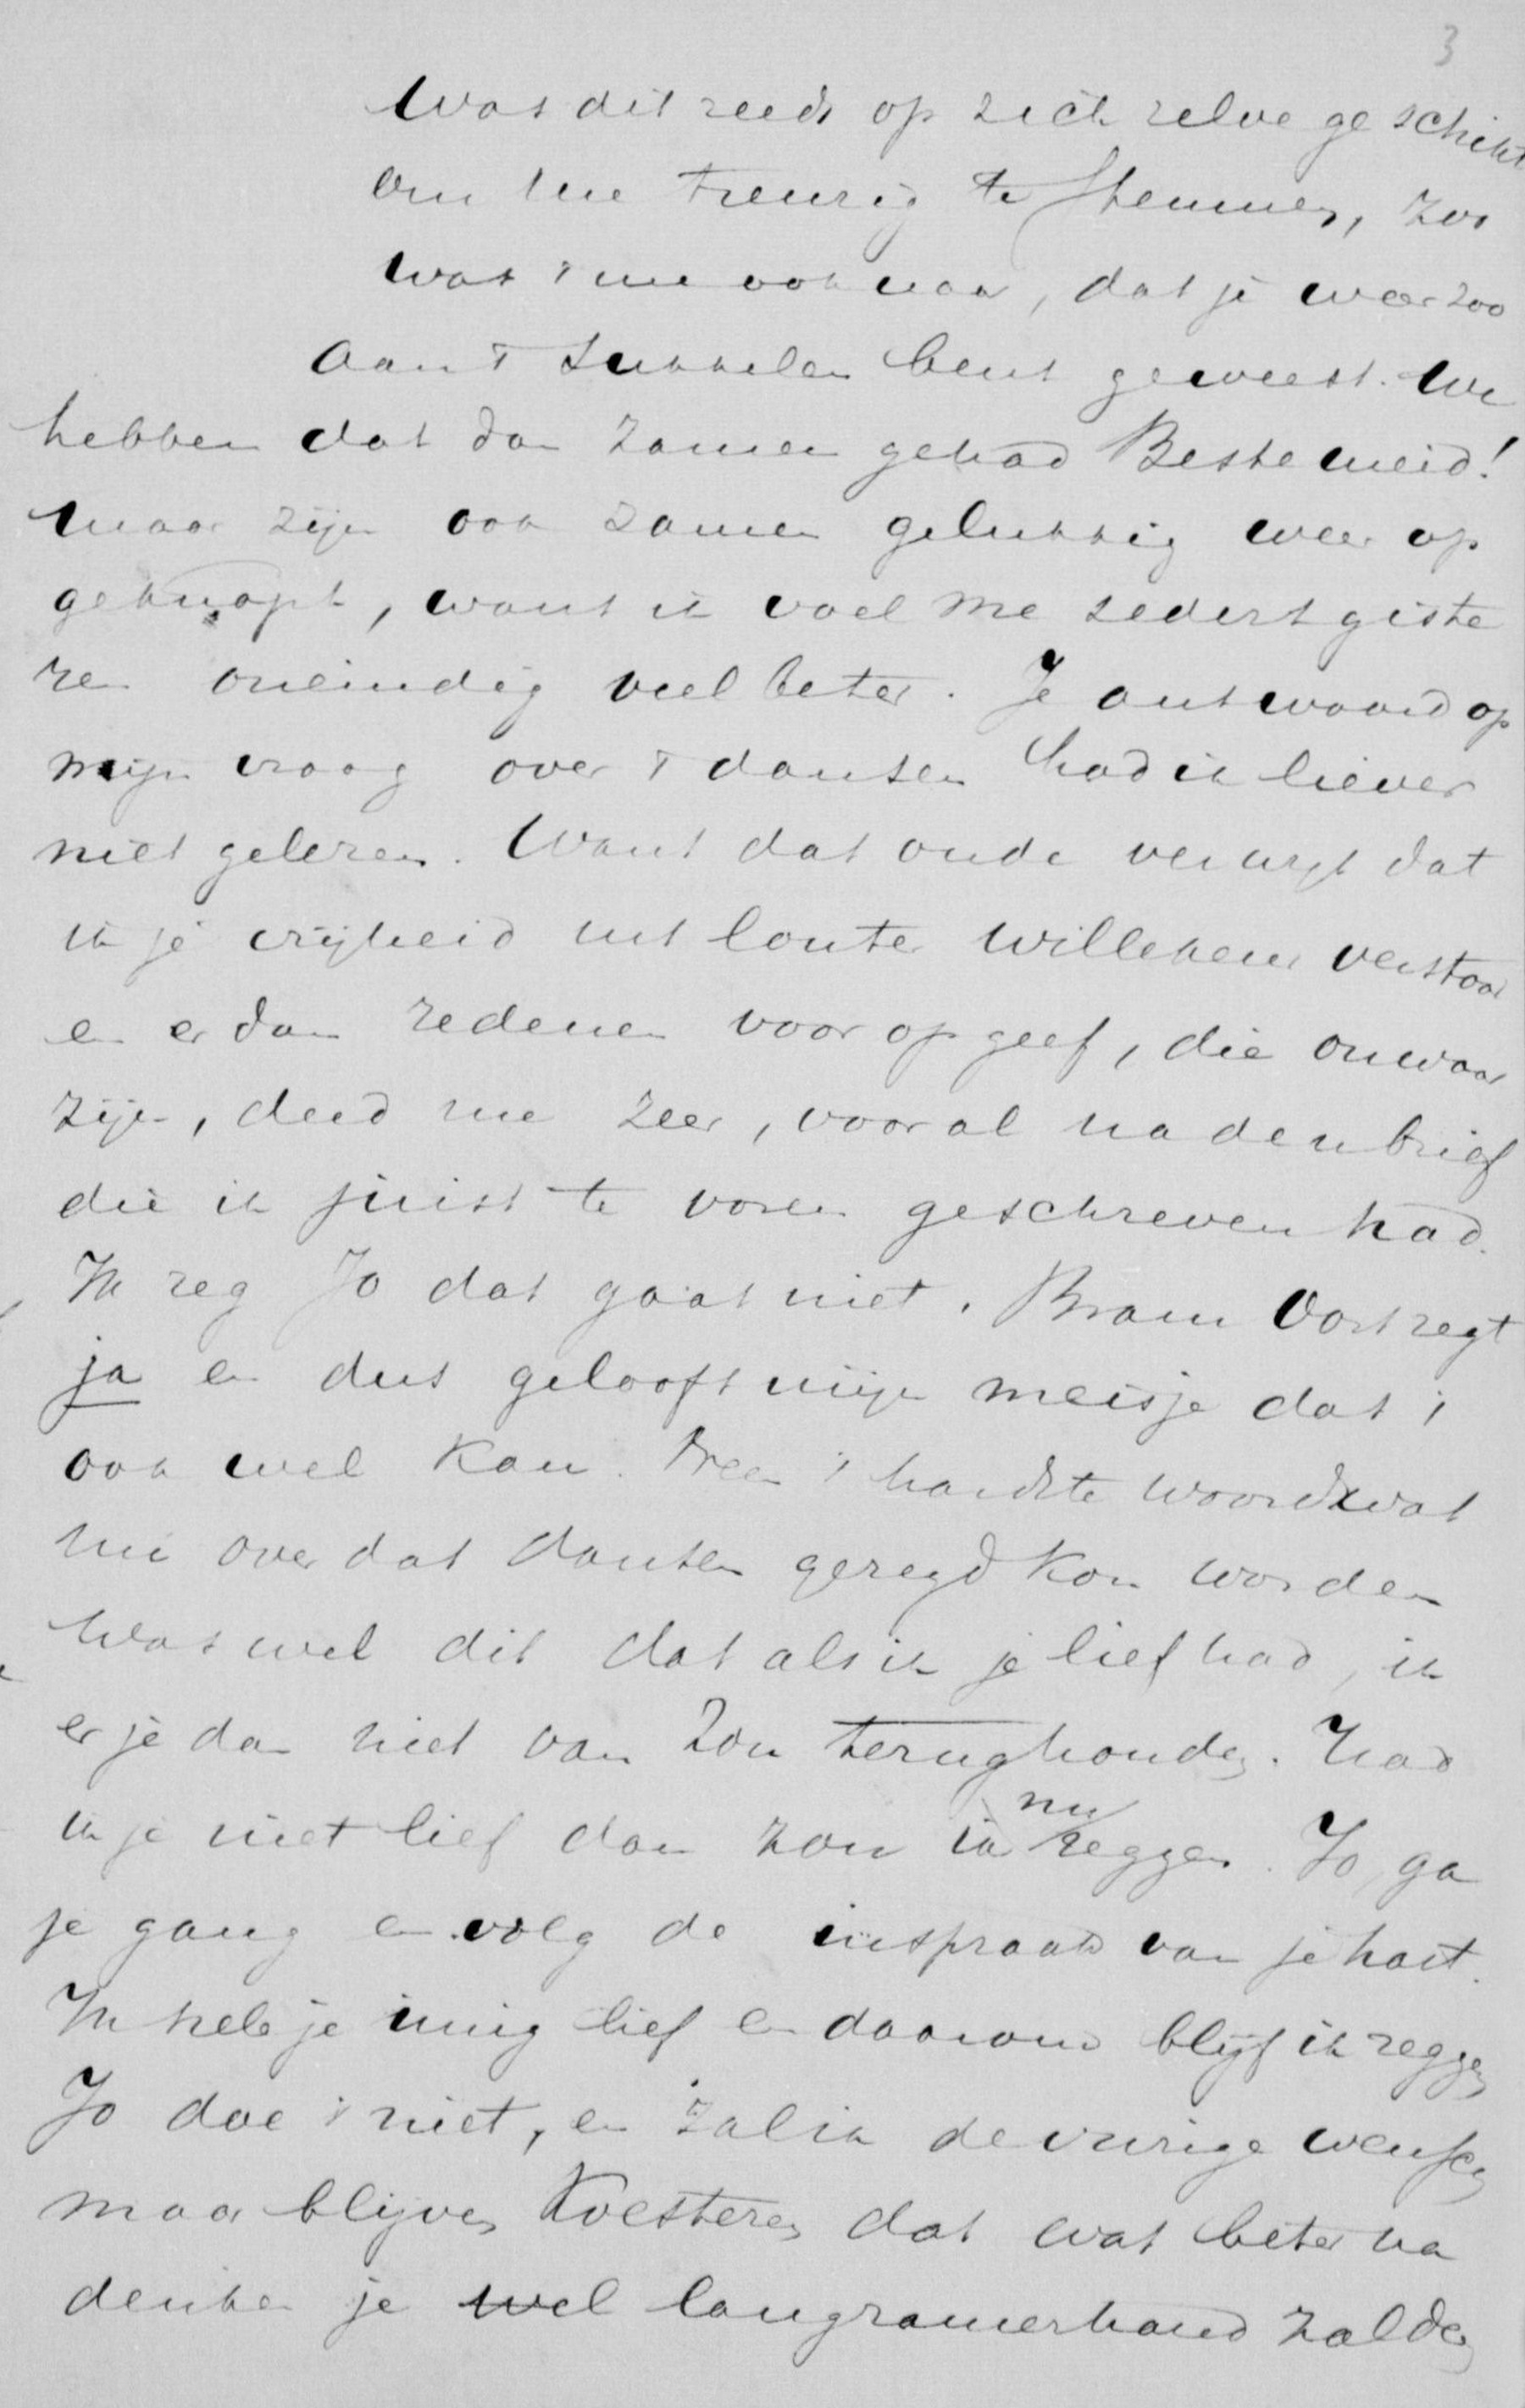 3
Was dit reeds op zich zelve geschikt
om me treurig te stemmen, zoo
was 't me ook naar, dat je weer zoo
aan 't sukkelen bent geweest. We
hebben dat dan zamen gehad Beste meid!
maar zijn ook zamen gelukkig weer op
geknapt, want ik voel me sedert giste
ren oneindig veel beter. Je antwoord op
mijn vraag over 't dansen had ik liever
niet gelezen. Want dat oude verwijt dat
ik je vrijheid uit louter willekeur verstoor
en er dan redenen voor opgeef, die onwaar
zijn, deed me zeer, vooral na den brief
die ik juist te voren geschreven had.
Ik zeg Jo dat gaat niet. Bram Vos zegt
ja en dus gelooft mijn meisje dat 't
ook wel kan. Neen 't hardste woord wat
me over dat dansen gezegd kon worden
was wel dit dat als ik je lief had, ik
er je dan niet van zou terughouden. Had
ik je niet lief dan zou ik nu zeggen. Jo, ga
je gang en volg de inspraak van je hart.
Ik heb je innig lief en daarom blijf ik zeggen
Jo doe 't niet, en zal ik de vurige wensch
maar blijven koesteren dat wat beter na
denken je wel langzamerhand zal den